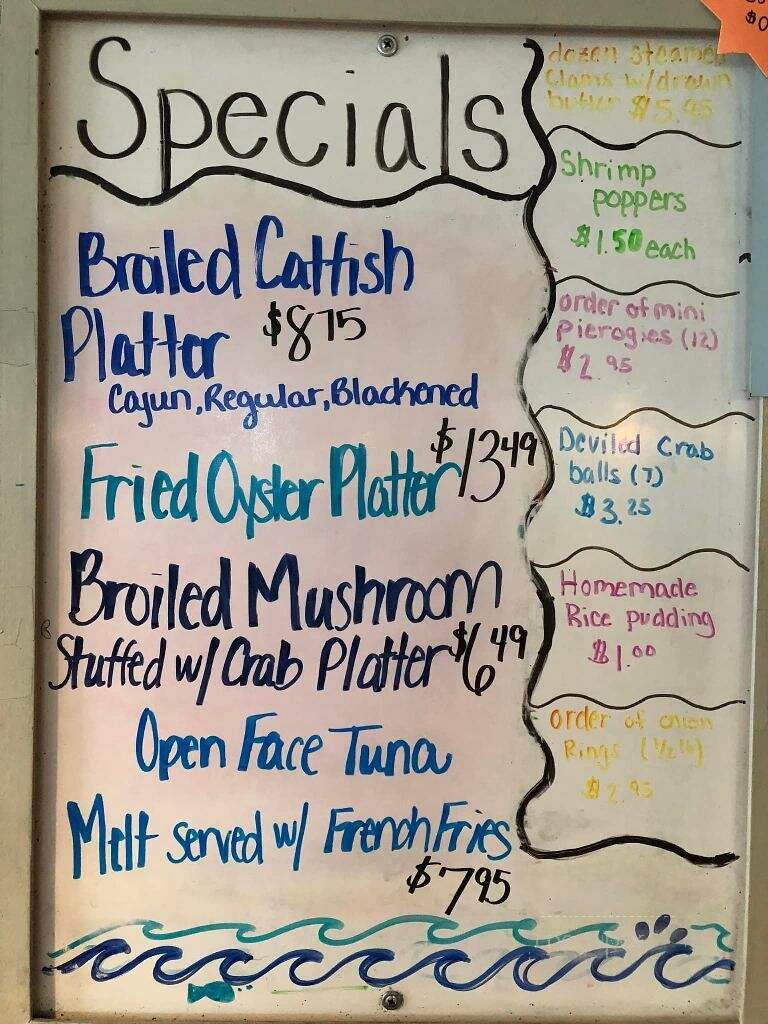 Specials
Broiled Catfish
Platter $8.75
Cajun, Regular, Blackened
Fried Oyster Platter $13.49
Broiled Mushroom
Stuffed w/ Crab Platter $6.49
Open Face Tuna
Melt served w/ French Fries
$7.95
dozen steamed
Clams w/drawn
butter $5.95
Shrimp
poppers
$1.50 each
order of mini
pierogies (12)
$2.95
Deviled Crab
balls (7)
$3.25
Homemade
Rice pudding
$1.00
order of onion
Rings (1/2 lb)
$2.95